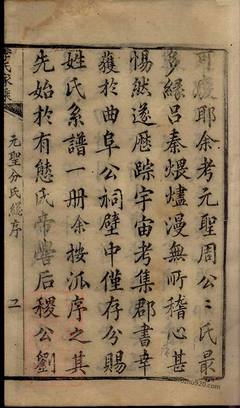 可廢耶余考元聖周公公氏最
多緣呂秦煨燼漫無所稽心甚
惕然遂歷踪宇宙考集郡書幸
獲於曲阜公祠壁中僅存分賜
姓氏系譜一册余按派序之其
先始於有熊氏帝嚳后稷公劉
元聖分氏總序